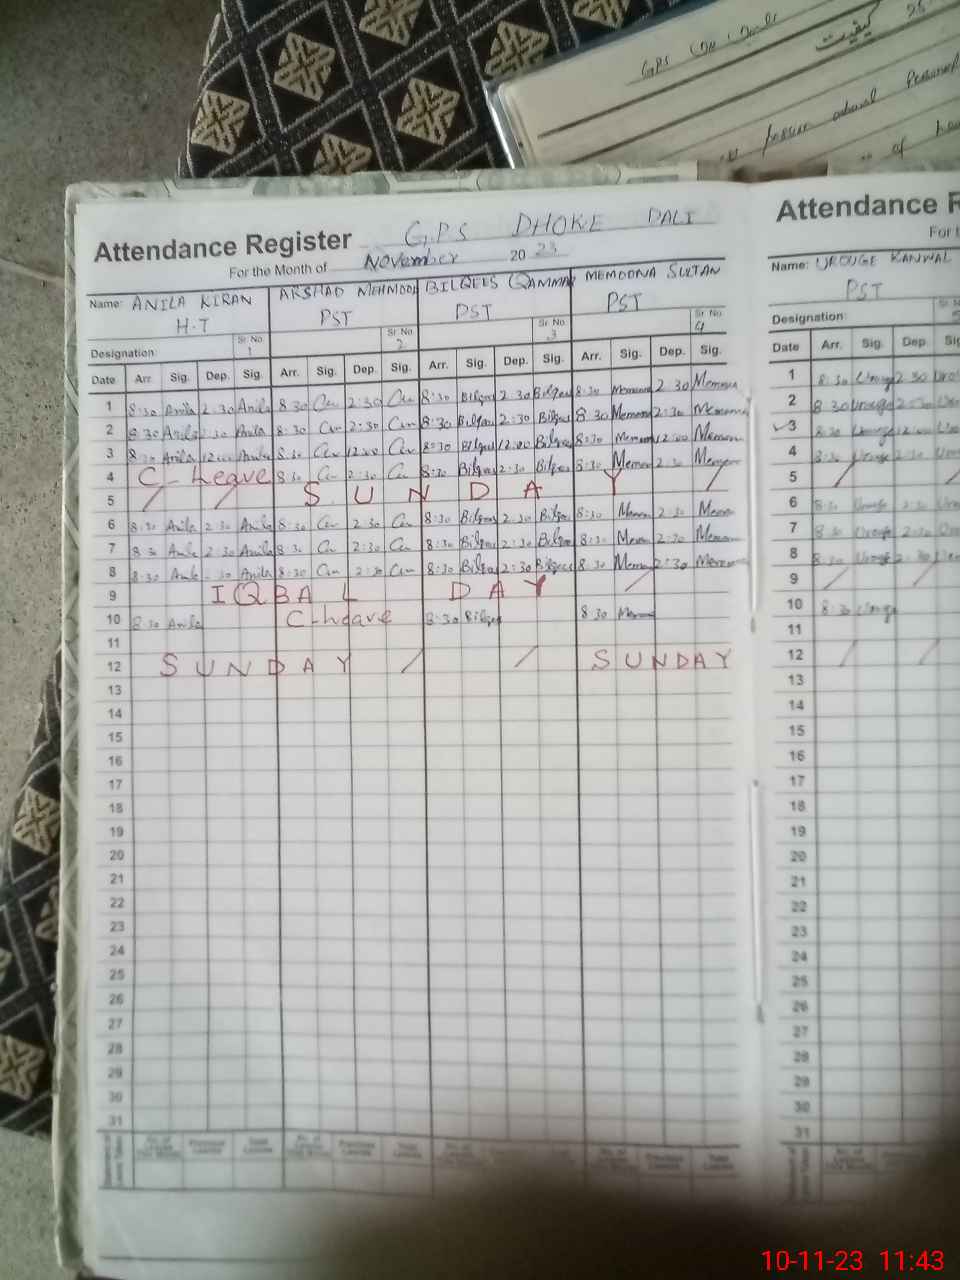 GPS
کیفیت
25
Personal
of
Attendance Register GPS DHOKE DALI
For the Month of November 2023
Name: ANILA KIRAN ARSHAD MEHMOOD BILQEES QAMMAR MEMOONA SULTAN
H.T PST PST PST
Sr. No. 1 Sr. No. 2 Sr. No. 3 Sr. No. 4
Designation:
Date Arr. Sig. Dep. Sig. Arr. Sig. Dep. Sig. Arr. Sig. Dep. Sig. Arr. Sig. Dep. Sig.
1 8:30 Anila 2:30 Anila 8 30 2:30 8:30 Bilqees 2 30 Bilqees 8:30 Memoona 2 30 Memoona
2 8 30 Anila 2:30 Anila 8:30 2:30 8:30 Bilqees 2:30 Bilqees 8 30 Memoona 2:30 Memoona
3 8:30 Anila 12:00 Anila 8:30 12:00 8:30 Bilqees 12:00 Bilqees 8:30 Memoona 12:00 Memoona
4 C- Leave 8:30 2:30 8:30 Bilqees 2:30 Bilqees 8:30 Memoona 2:30 Memoona
5 / / S U N D A Y /
6 8:30 Anila 2:30 Anila 8:30 2:30 8:30 Bilqees 2:30 Bilqees 8:30 Memoona 2:30 Memoona
7 8:30 Anila 2:30 Anila 8:30 2:30 8:30 Bilqees 2:30 Bilqees 8:30 Memoona 2:30 Memoona
8 8:30 Anila 2:30 Anila 8:30 2:30 8:30 Bilqees 2:30 Bilqees 8:30 Memoona 2:30 Memoona
9 I Q B A L D A Y /
10 8:30 Anila C-Leave 8:30 Bilqees 8 30 Memoona
11
12 S U N D A Y / / S U N D A Y
13
14
15
16
17
18
19
20
21
22
23
24
25
26
27
28
29
30
31
Attendance R
For t
Name: UROUGE KANWAL
PST
Designation:
Date Arr. Sig. Dep. Sig
1 8:30 Urouge 2 30
2 8 30 Urouge 2:30
3 8:30 Urouge 12:00
4 8:30 Urouge 2:30
5 / /
6 8:30 Urouge 2:30
7 8:30 Urouge 2:30
8 8:30 Urouge 2:30
9 / /
10 8:30 Urouge
11
12 / /
13
14
15
16
17
18
19
20
21
22
23
24
25
26
27
28
29
30
31
10-11-23 11:43